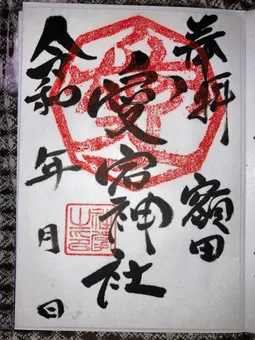 奉拝
額田
愛宕神社
令和 年 月 日